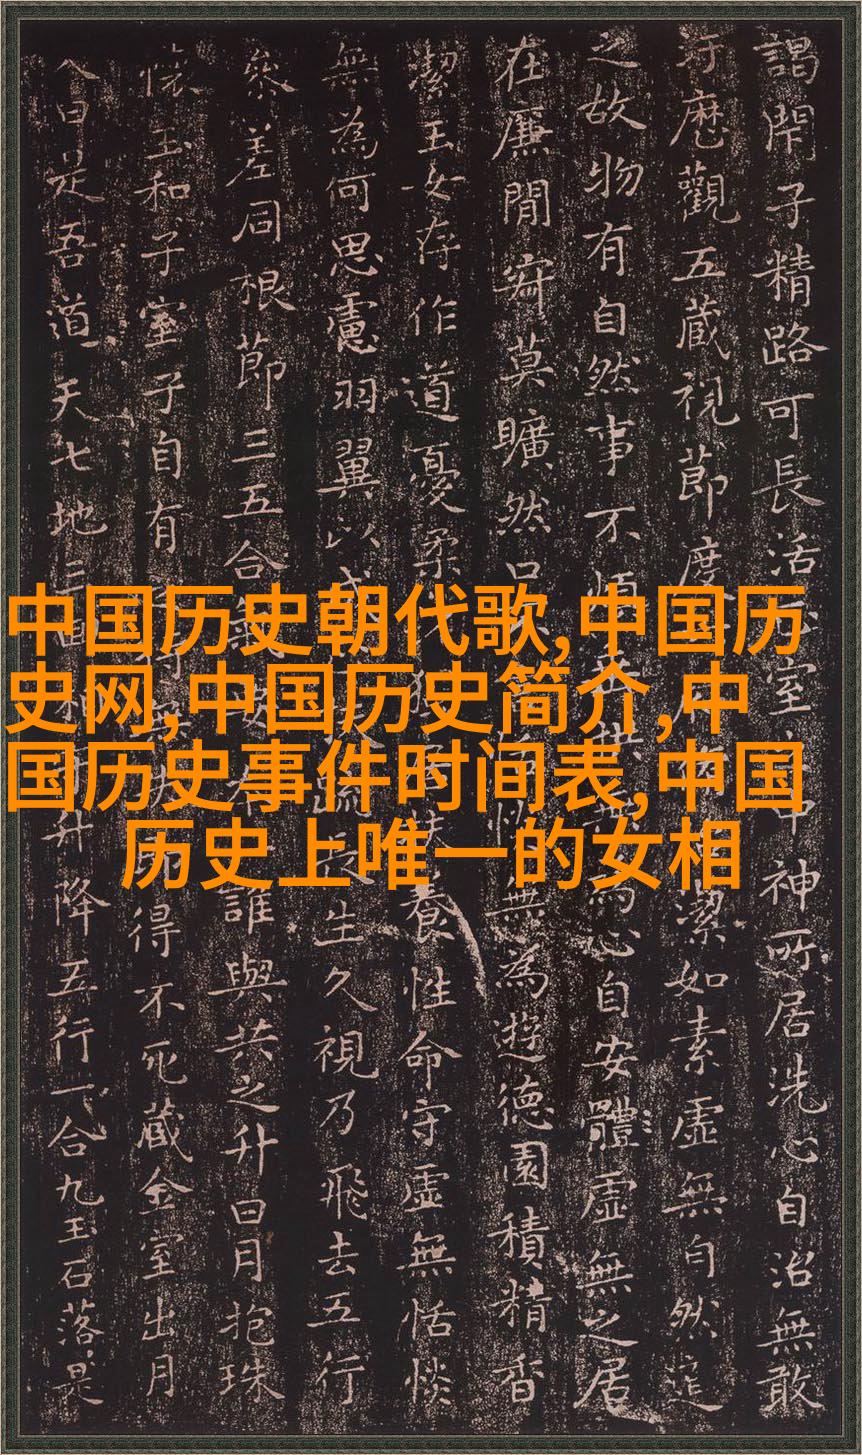 中国历史朝代歌,中国历
史网,中国历史简介,中
国历史事件时间表,中国
历史上唯一的女相
謁閇子精路可長活室中神所居洗心自治無敢
汙歷觀五藏視節度潔如素虛無自然道
之故物有自然事不煩無為心自安體虛無之居
在廉間寂莫曠然口無為遊德園積精香
潔玉女存作道憂柔養性命守虛無恬惔
無為何思慮羽翼以成生久視乃飛去五行
參差同根節三五合氣誰與共之升日月抱珠
懷玉和子室子自有得不死藏金室出月
入日是吾道天七地三升降五行一合九玉石落是